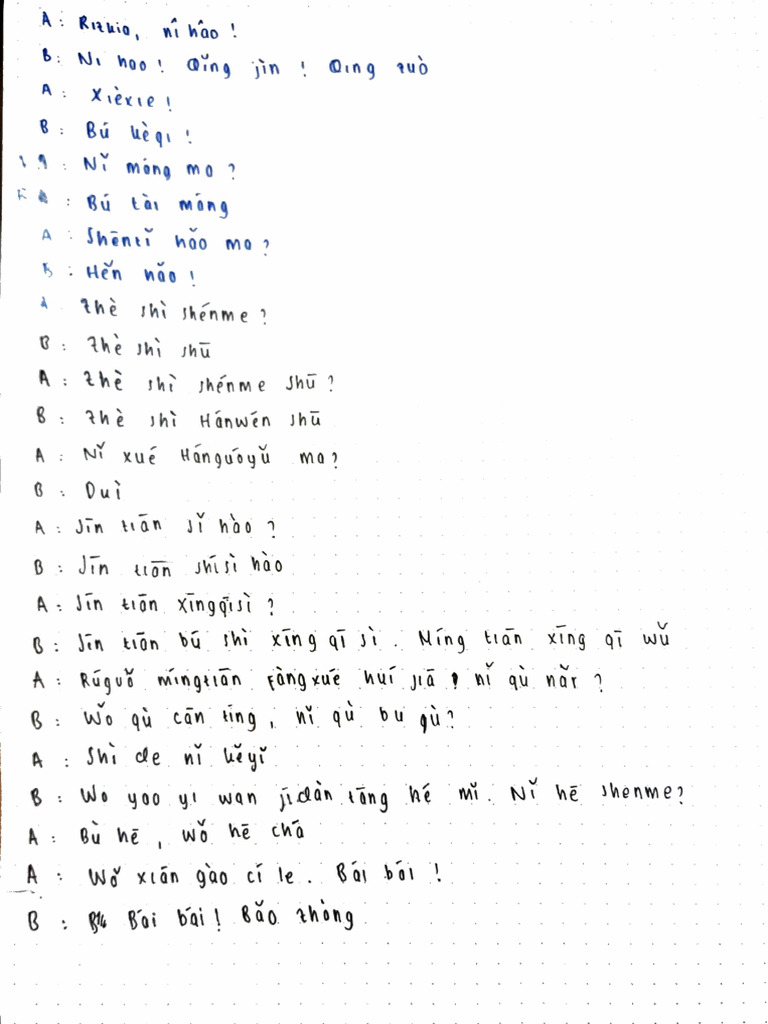 A : Rizkia, nî hâo !
B : Ni hao ! Qǐng jìn ! Qing zuò
A : Xièxie !
B : Bú kèqi !
Nǐ máng ma ?
: Bú tài máng
A : Shēntǐ hǎo ma ?
B : Hěn hǎo !
A Zhè shì shénme ?
B : Zhè shì shū
A : Zhè shì shénme shū ?
B : Zhè shì Hánwén shū
A : Nǐ xué Hánguóyǔ ma ?
B : Duì
A : Jīn tiān sǐ hào ?
B : Jīn tiān shísì hào
A : Jīn tiān xīngqīsì ?
B : Jīn tiān bú shì xīng qī sì . Míng tiān xīng qī wǔ
A : Rúguǒ míngtiān fàngxué huí jiā , nǐ qù nǎr ?
B : Wǒ qù cān tīng , nǐ qù bu qù ?
A : Shì de nǐ kěyǐ
B : Wo yao yi wan jīdàn tāng hé mǐ . Nǐ hē shenme ?
A : Bù hē , wǒ hē chá
A : Wǒ xiān gào cí le . Bái bái !
B : Bái bái ! Bǎo zhòng